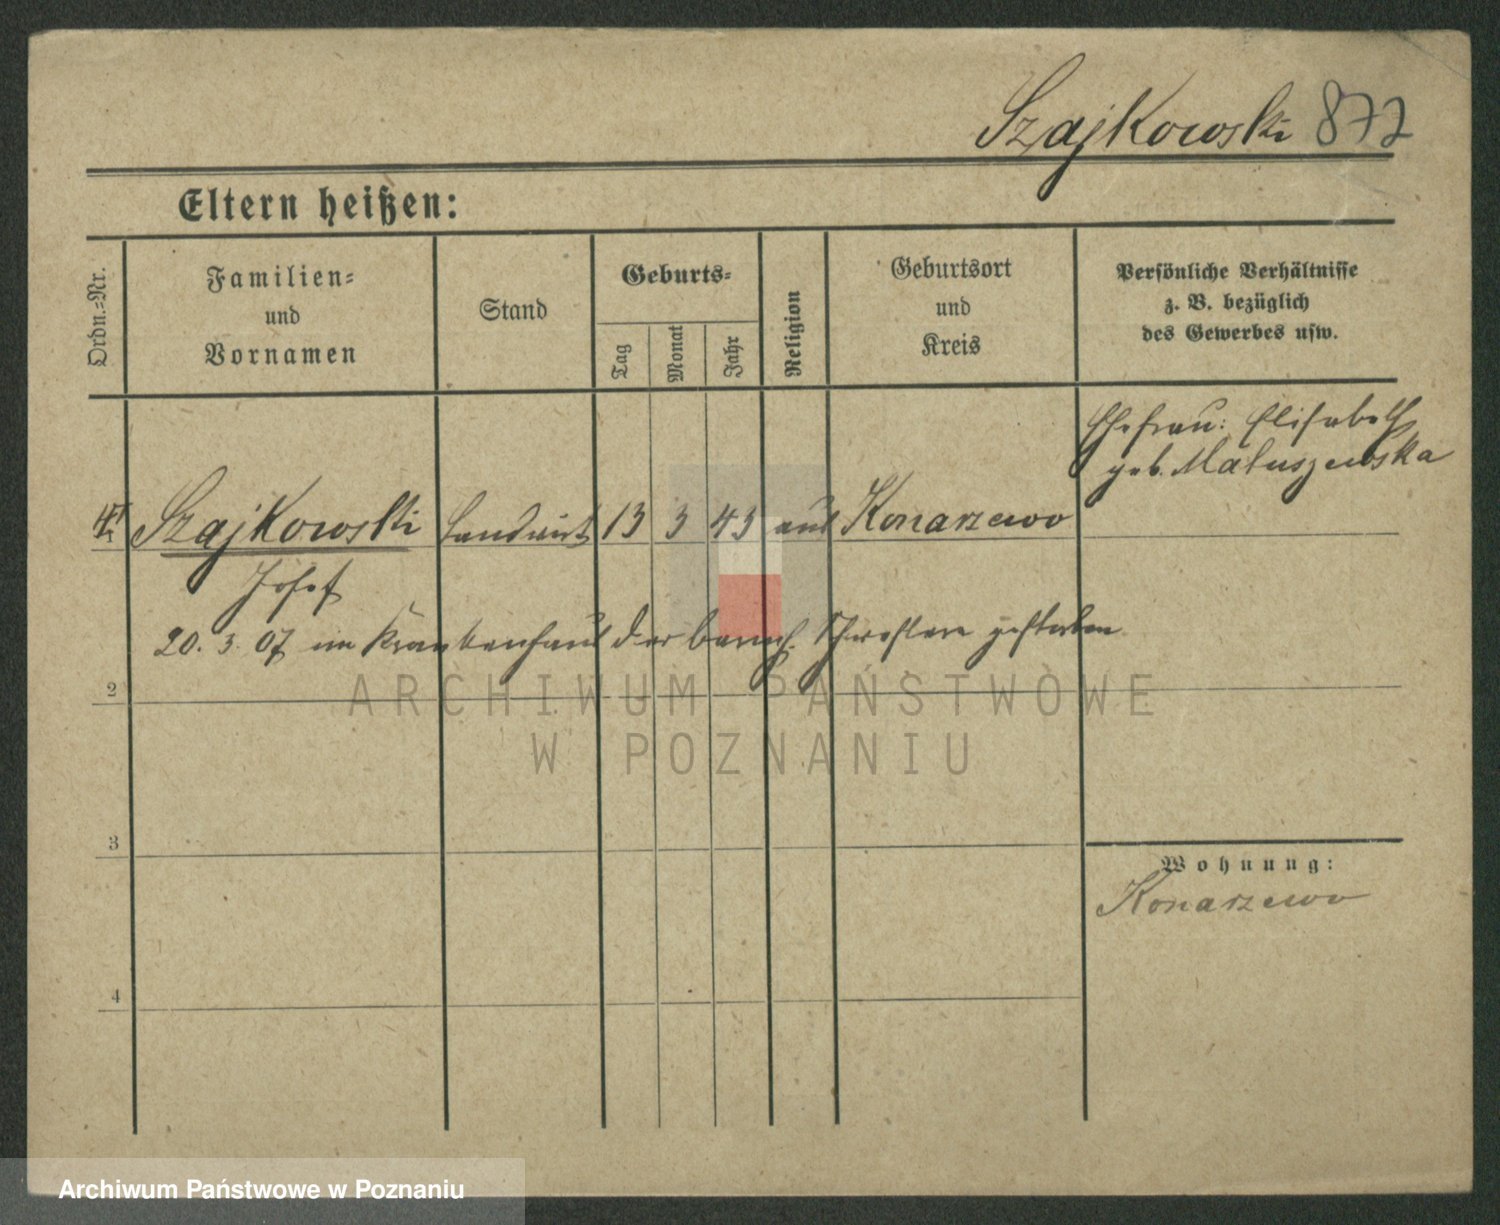 Szajkowski 872
Eltern heißen:
Ordn.=Nr.
Familien=
und
Vornamen
Stand
Geburts=
Tag
Monat
Jahr
Religion
Geburtsort
und
Kreis
Persönliche Verhältnisse
z. B. bezüglich
des Gewerbes usw.
Ehefrau: Elisabeth
geb. Matuszewska
Szajkowski Landwirt 13 3 43 aus Konarzewo
Josef
20. 3. 07 im Krankenhaus der barmh. Schwestern gestorben
2
ARCHIWUM PAŃSTWOWE
W POZNANIU
3
Wohnung:
Konarzewo
4
Archiwum Państwowe w Poznaniu